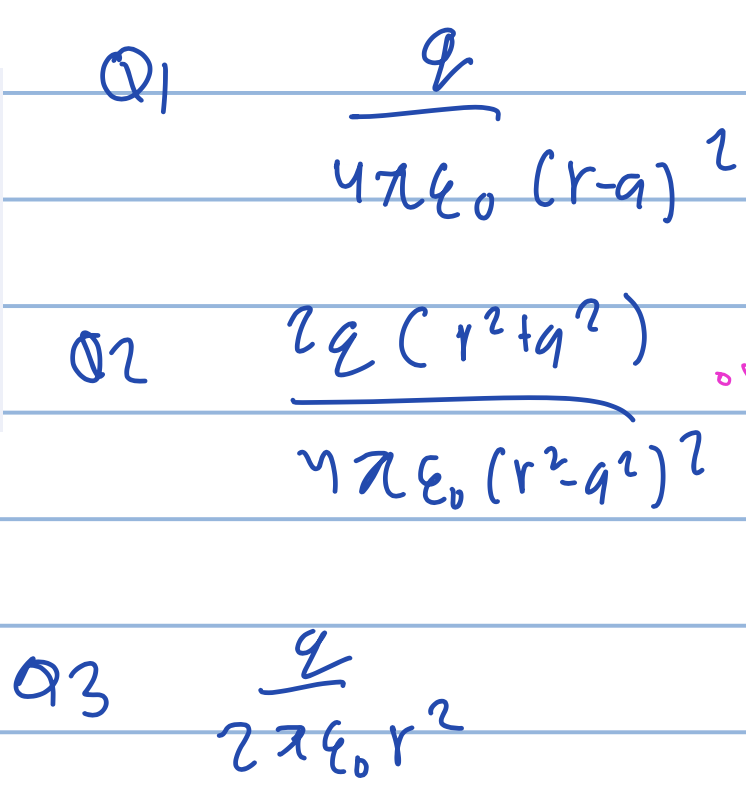 Q1 q
4πε₀ (r-a)²
Q2 2q (r²+a²)
4πε₀ (r²-a²)²
Q3 q
2πε₀ r²